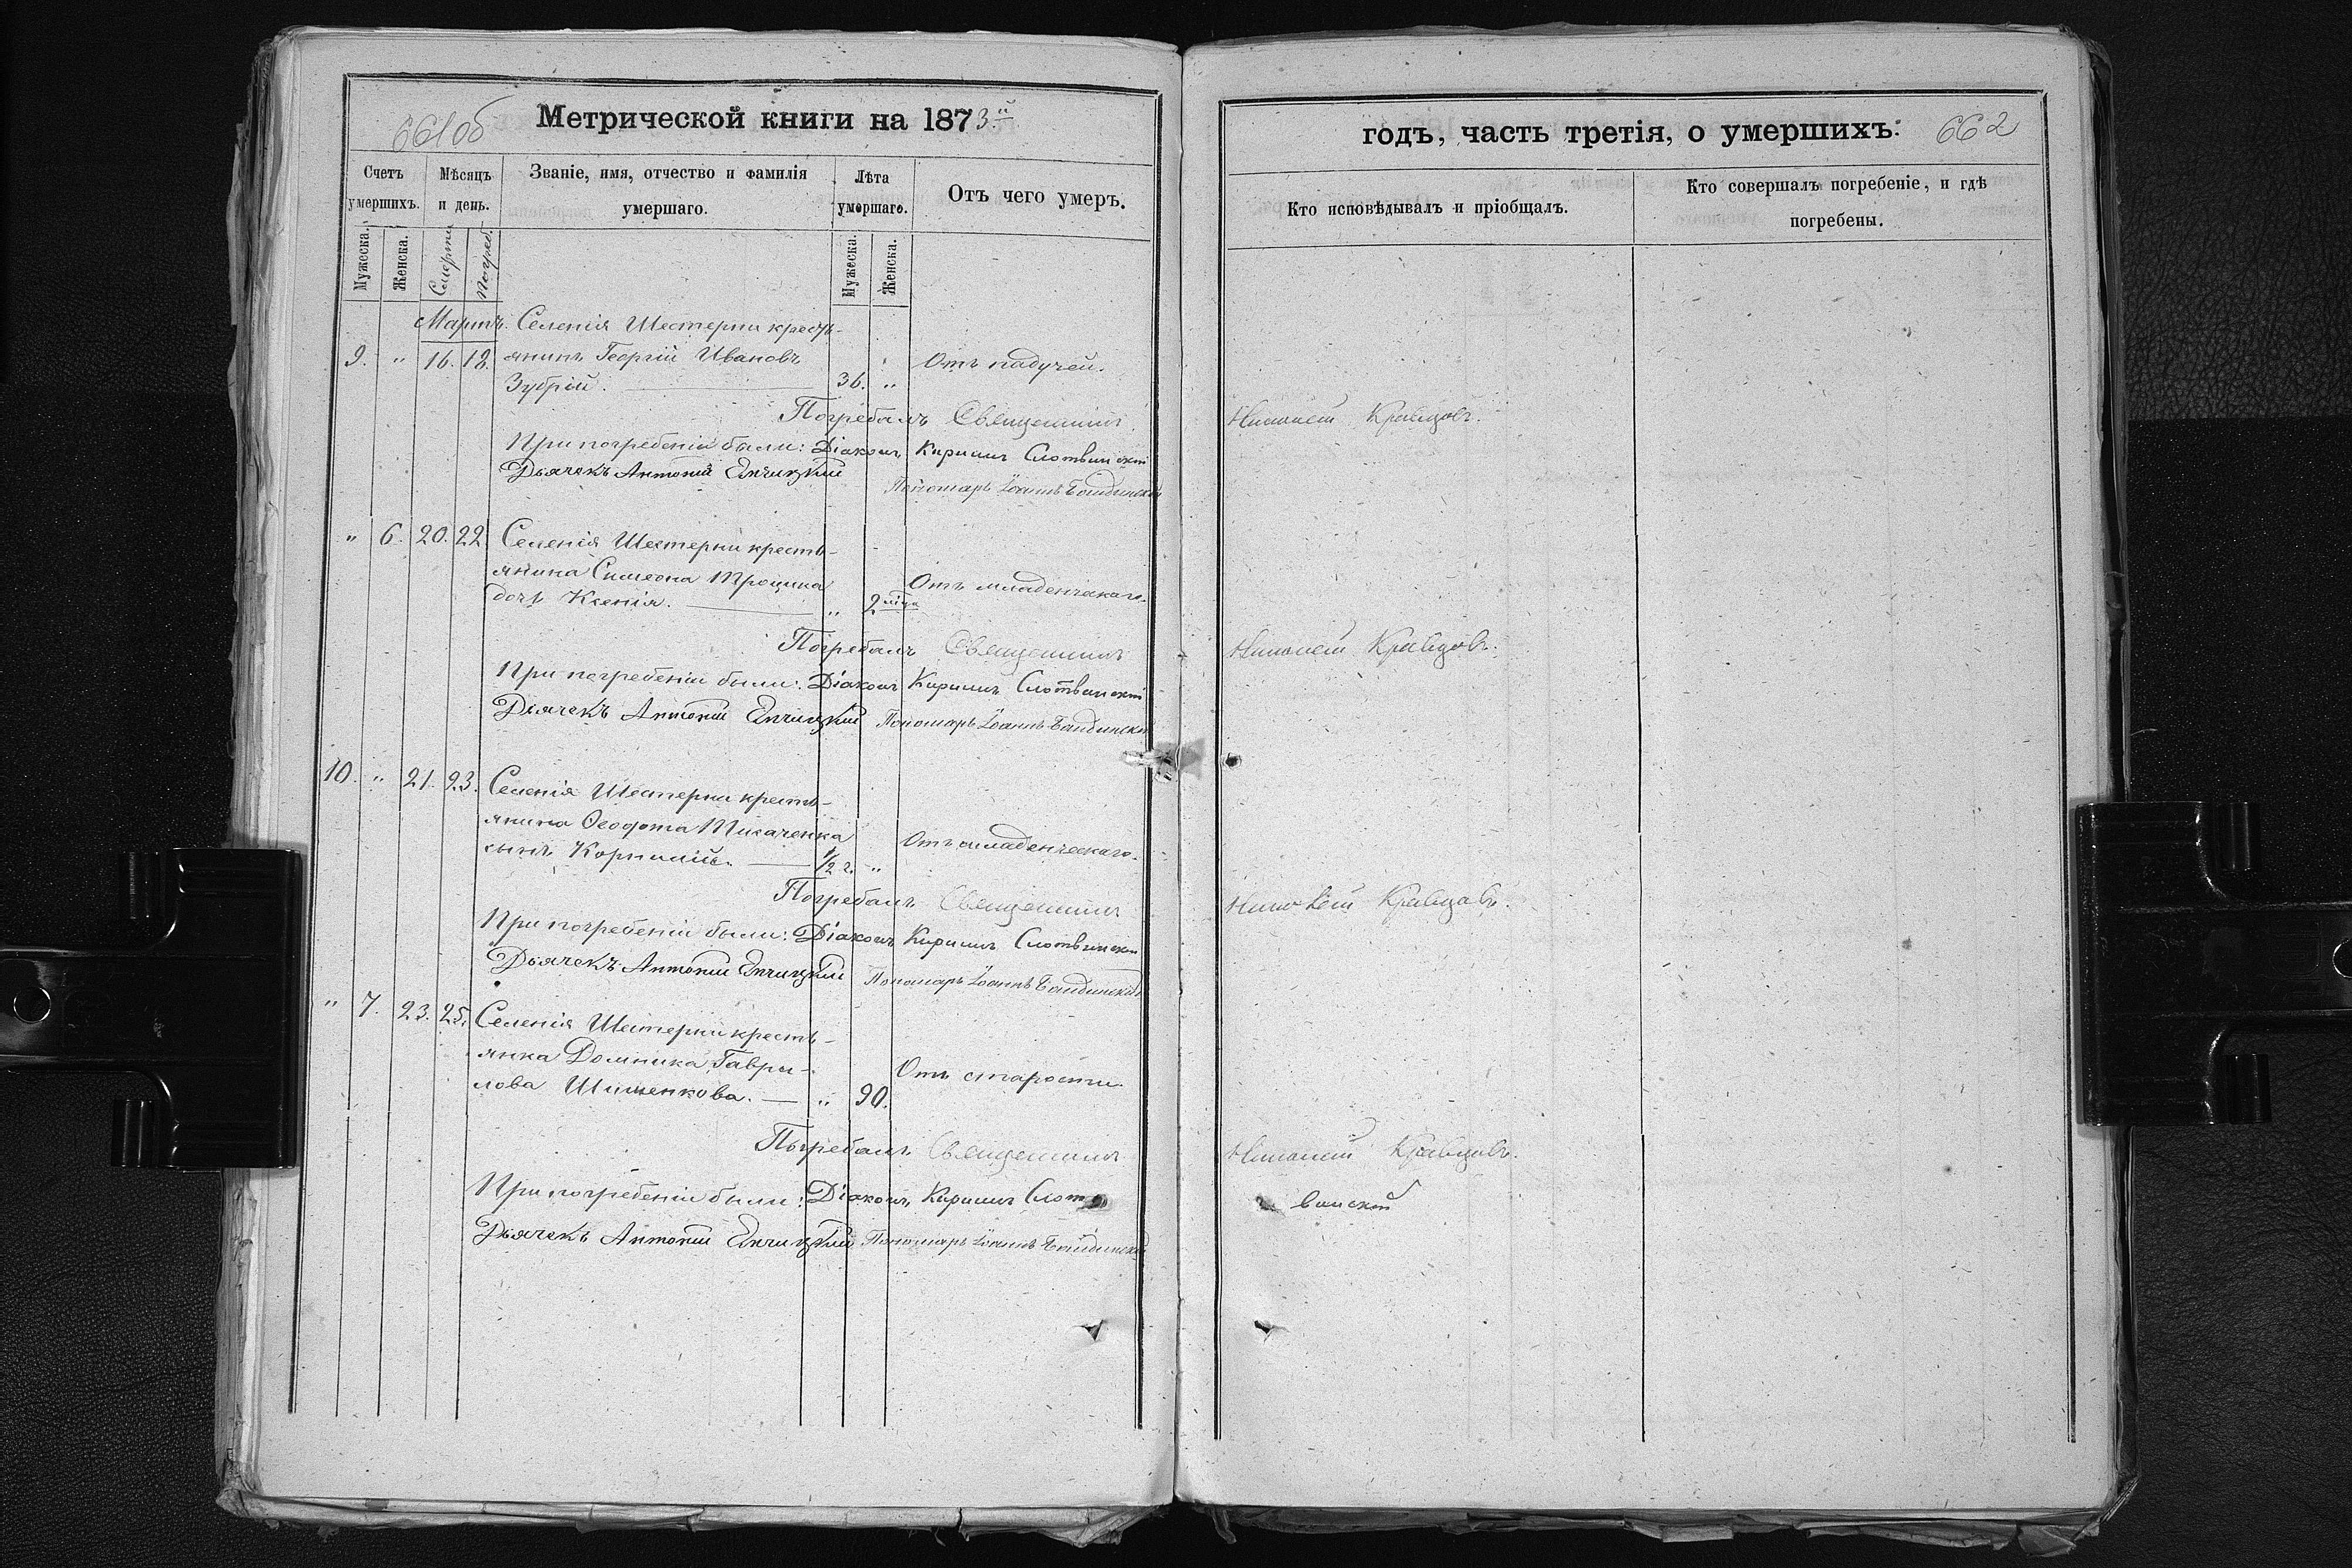 661об
Метрической книги на 1873й
Счетъ умершихъ.
Мѣсяцъ и день.
Званіе, имя, отчество и фамилія умершаго.
Лѣта умершаго.
Отъ чего умеръ.
Мужеска.
Женска.
Смерти
Погреб.
Мужеска.
Женска.
Мартъ. Селенія Шестерни кресть-
9. " 16. 18. янинъ Георгій Ивановъ Отъ падучей.
Зубрій. 36. "
Погребалъ Священникъ Николай Кравцовъ.
При погребеніи были: Діаконъ Кириллъ Слотвинскій
Дьячекъ Антоній
Пономарь Іоаннъ
" 6. 20. 22. Селенія Шестерни кресть-
янина Симеона Трощина Отъ младенческаго.
дочь Ксенія. " 2
Погребалъ Священникъ Николай Кравцовъ.
При погребеніи были: Діаконъ Кириллъ Слотвинскій
Дьячекъ Антоній
Пономарь Іоаннъ
10. " 21. 23. Селенія Шестерни кресть-
янина Ѳеодота Ткаченка Отъ младенческаго.
сынъ Корнилій. 1/2 г. "
Погребалъ Священникъ Николай Кравцовъ.
При погребеніи были: Діаконъ Кириллъ Слотвинскій
Дьячекъ Антоній
Пономарь Іоаннъ
" 7. 23. 25. Селенія Шестерни кресть-
янка Домника Гаври- Отъ старости.
лова Шишенкова. " 90.
Погребалъ Священникъ Николай Кравцовъ.
При погребеніи были: Діаконъ Кириллъ Слот винскій
Дьячекъ Антоній
Пономарь Іоаннъ
годъ, часть третія, о умершихъ: 662
Кто исповѣдывалъ и пріобщалъ.
Кто совершалъ погребеніе, и гдѣ
погребены.